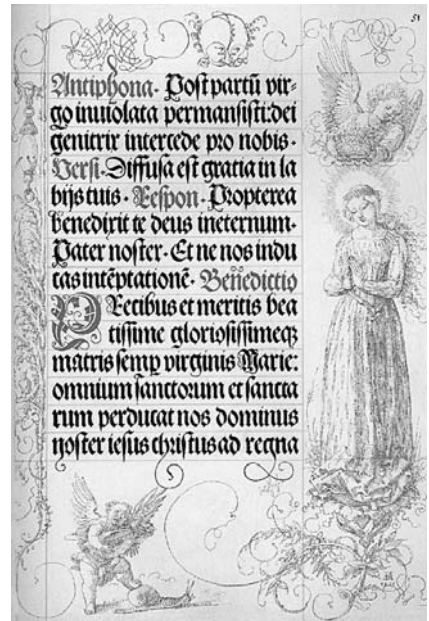 51
Antiphona. Post partū vir-
go inuiolata permansisti: dei
genitrix intercede pro nobis.
Versi. Diffusa est gratia in la
bijs tuis. Respon. Propterea
benedixit te deus ineternum.
Pater noster. Et ne nos indu
cas intēptationē. Benedictio
PRecibus et meritis bea
tissime gloriosissimeqꝫ
matris semp virginis Marie:
omnium sanctorum et sancta
rum perducat nos dominus
noster iesus christus ad regna